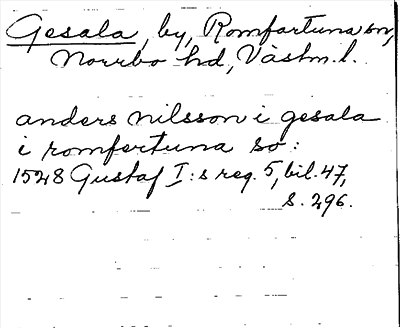 Gesala, by, Romfartuna sn,
Norrbo hd, Västm. l.
anders nilsson i gesala
i romfertuna so:
1528 Gustaf I:s reg. 5, bil. 47,
s. 296.